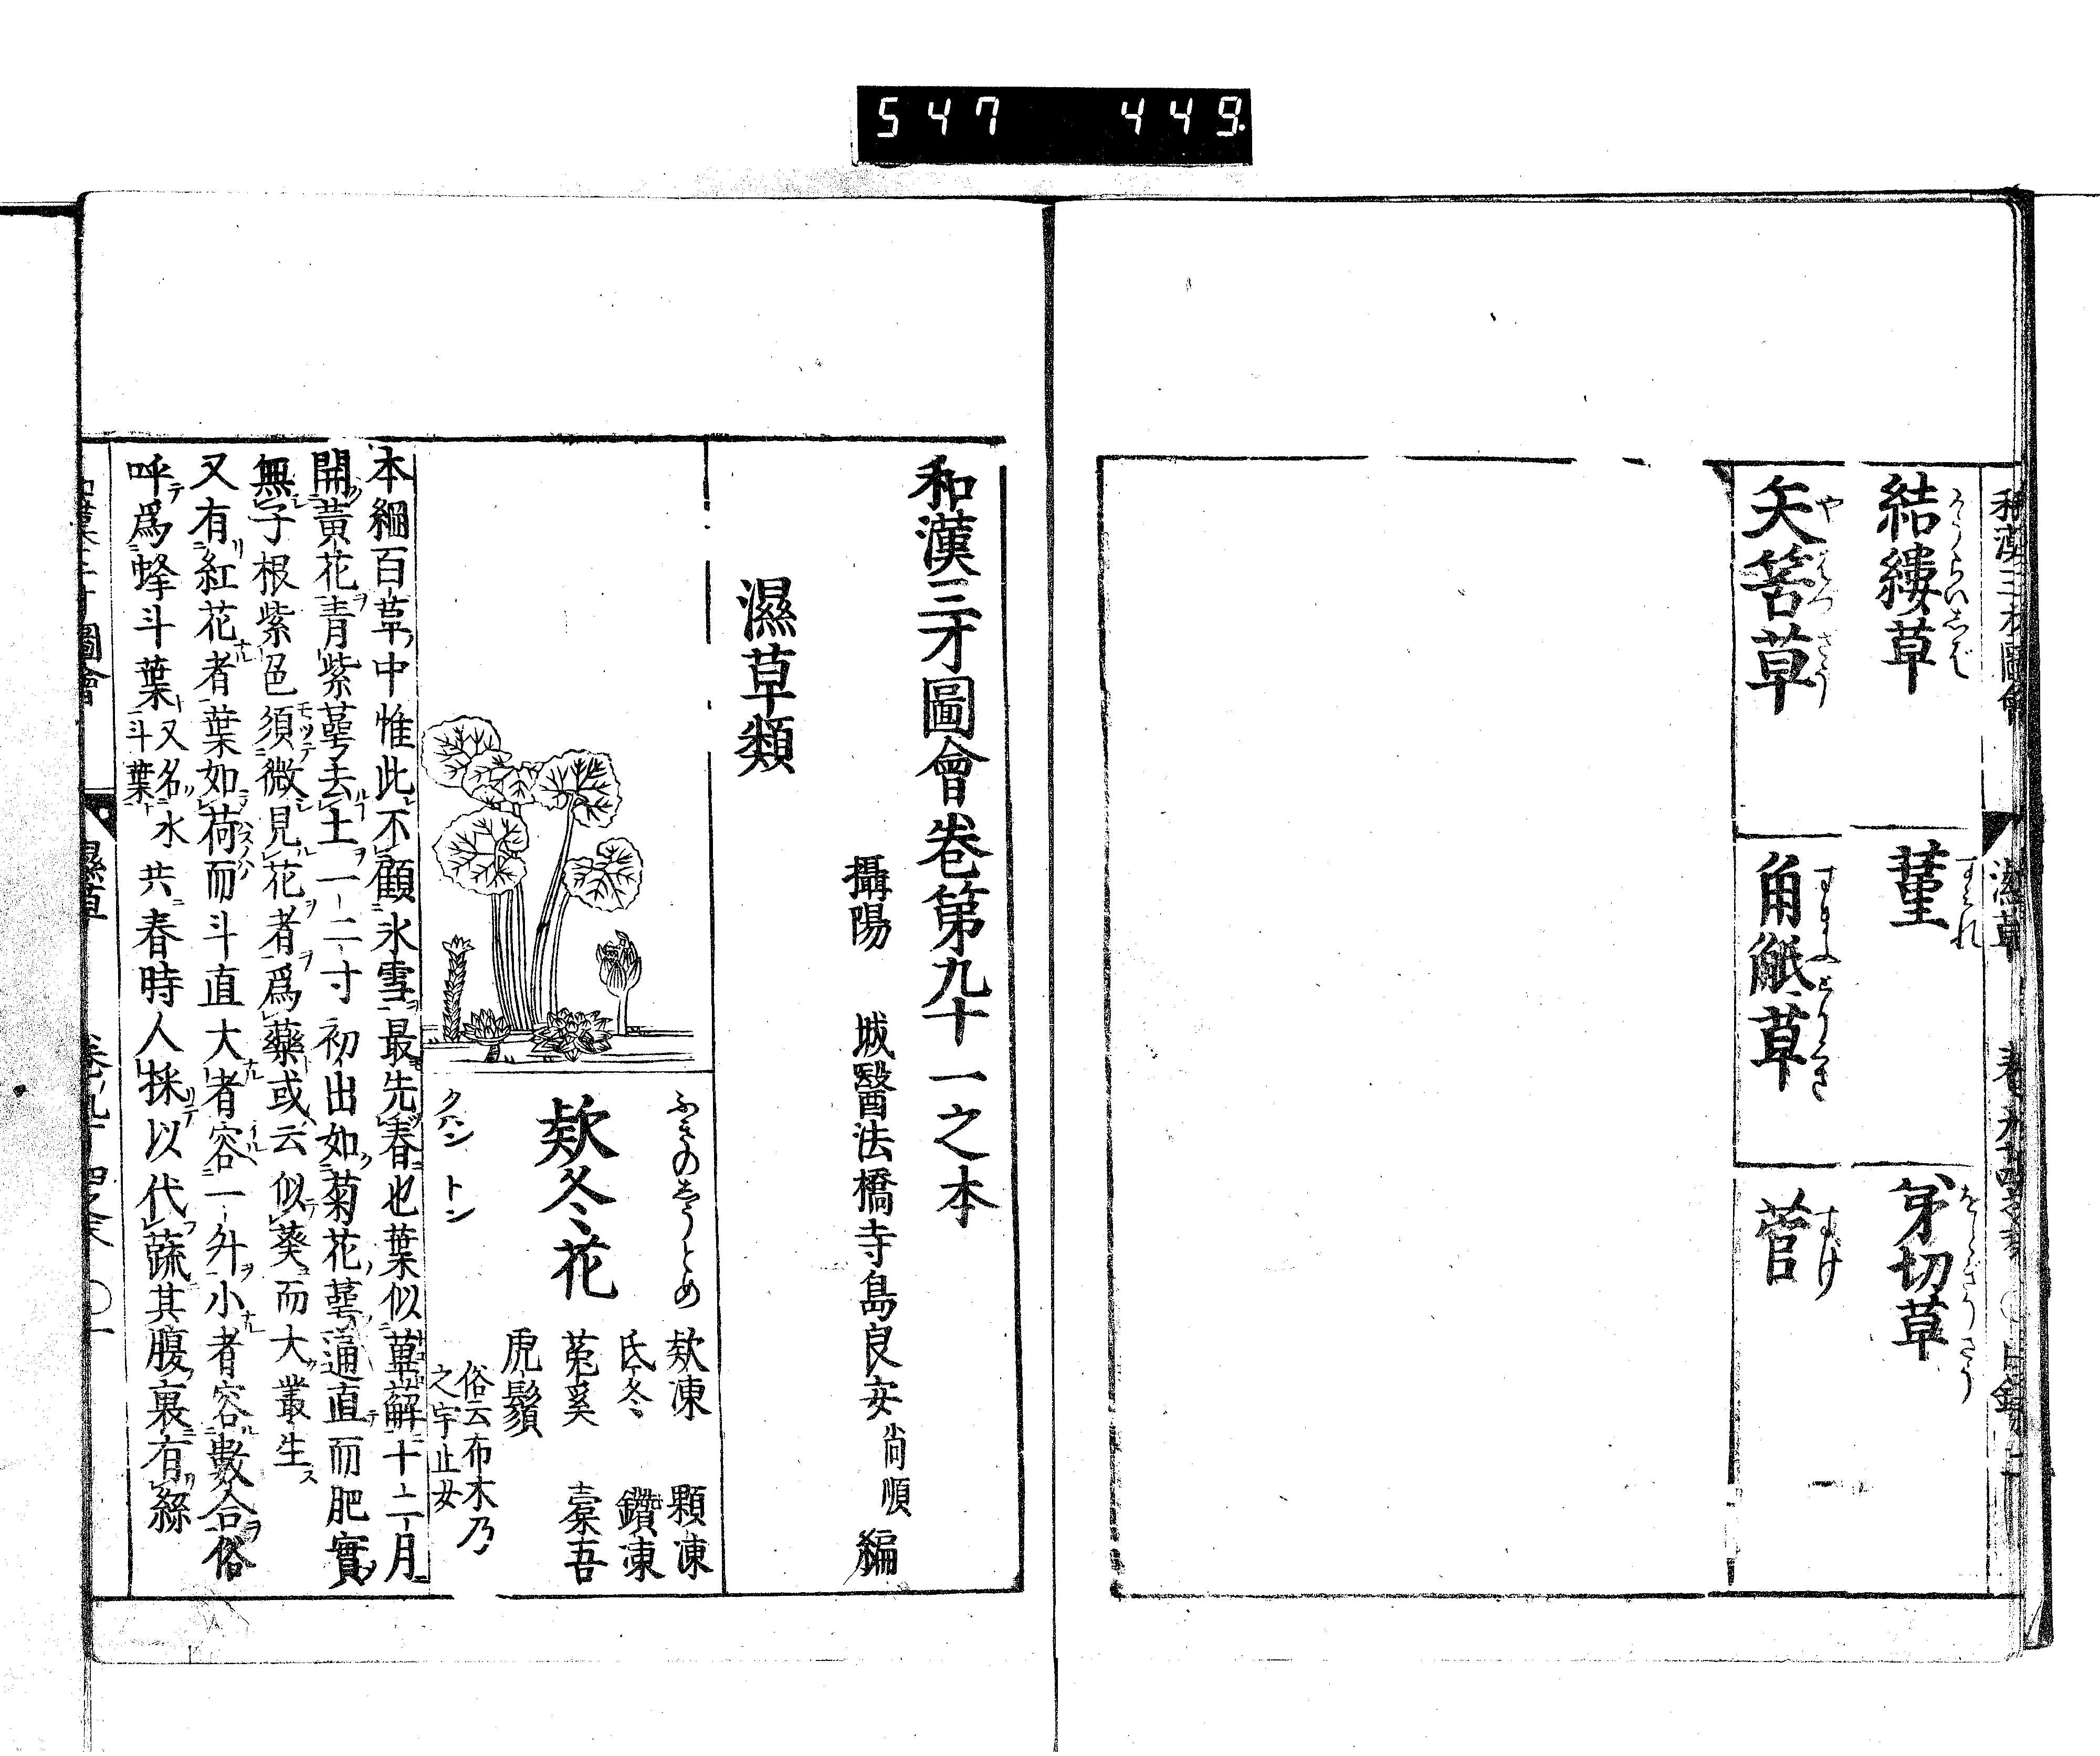 547 449
和漢三才圖會
濕草
結縷草
菫
すみれ
弟切草
をとぎりさう
矢筈草
やはづさう
角觝草
すまふとりくさ
菅
すげ
和漢三才圖會卷第九十一之本
攝陽 城醫法橋寺島良安尚順 編
濕草類
ふきのしうとめ
欵冬花
クハン トン
欵凍 顆凍
氐冬 鑽凍
菟奚 橐吾
虎鬚
俗云布木乃
之宇止女
本綱百草中惟此不顧氷雪最先春也葉似萆薢十二月
開黃花青紫萼去土一二寸初出如菊花萼通直而肥實
無子根紫色須微見花者爲藥或云似葵而大叢生ス
又有紅花者葉如荷而斗直大者容一升小者容數合俗
呼爲蜂斗葉又名水斗葉共春時人採以代蔬其腹裏有絲
濕草